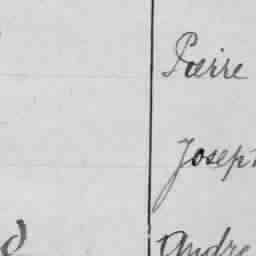 Pierre
Joseph
Andre